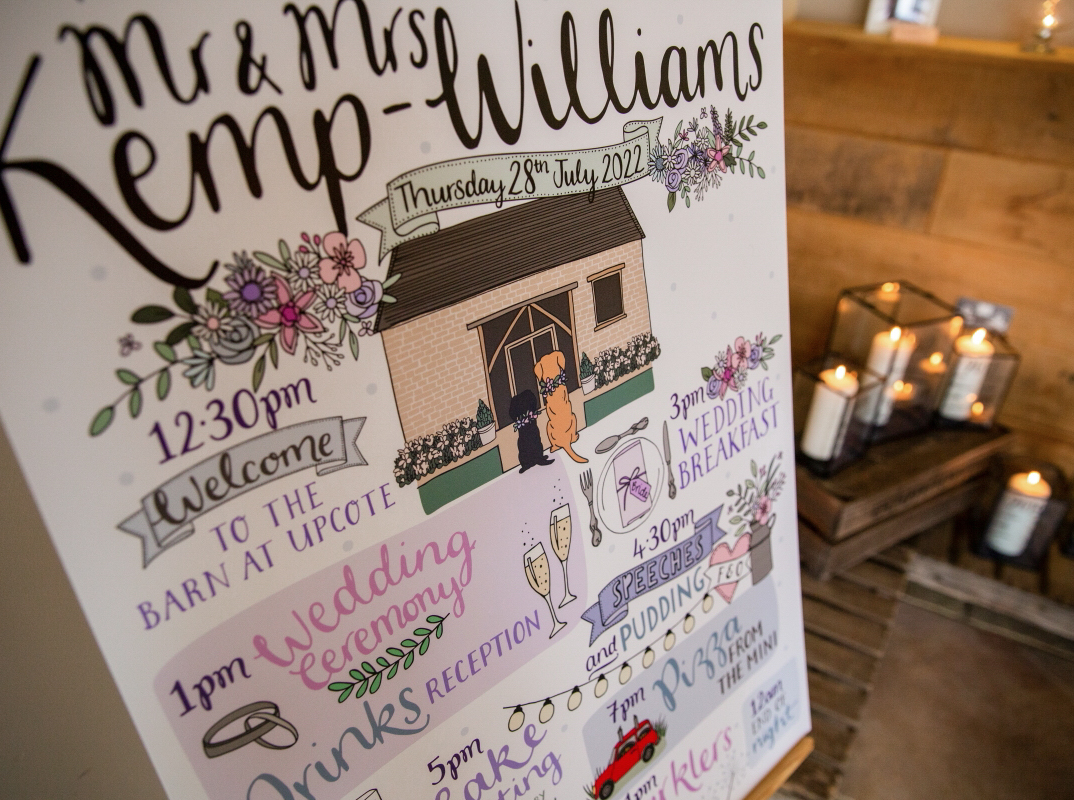 Mr & Mrs
Kemp-Williams
Thursday 28th July 2022
12:30pm
Welcome
TO THE
BARN AT UPCOTE
1pm
Wedding
Ceremony
Drinks RECEPTION
3pm
WEDDING
BREAKFAST
Bride
4:30pm
SPEECHES
and PUDDING
F&O
5pm
Cake
7pm
Pizza
FROM
THE MINI
12am
END OF
night